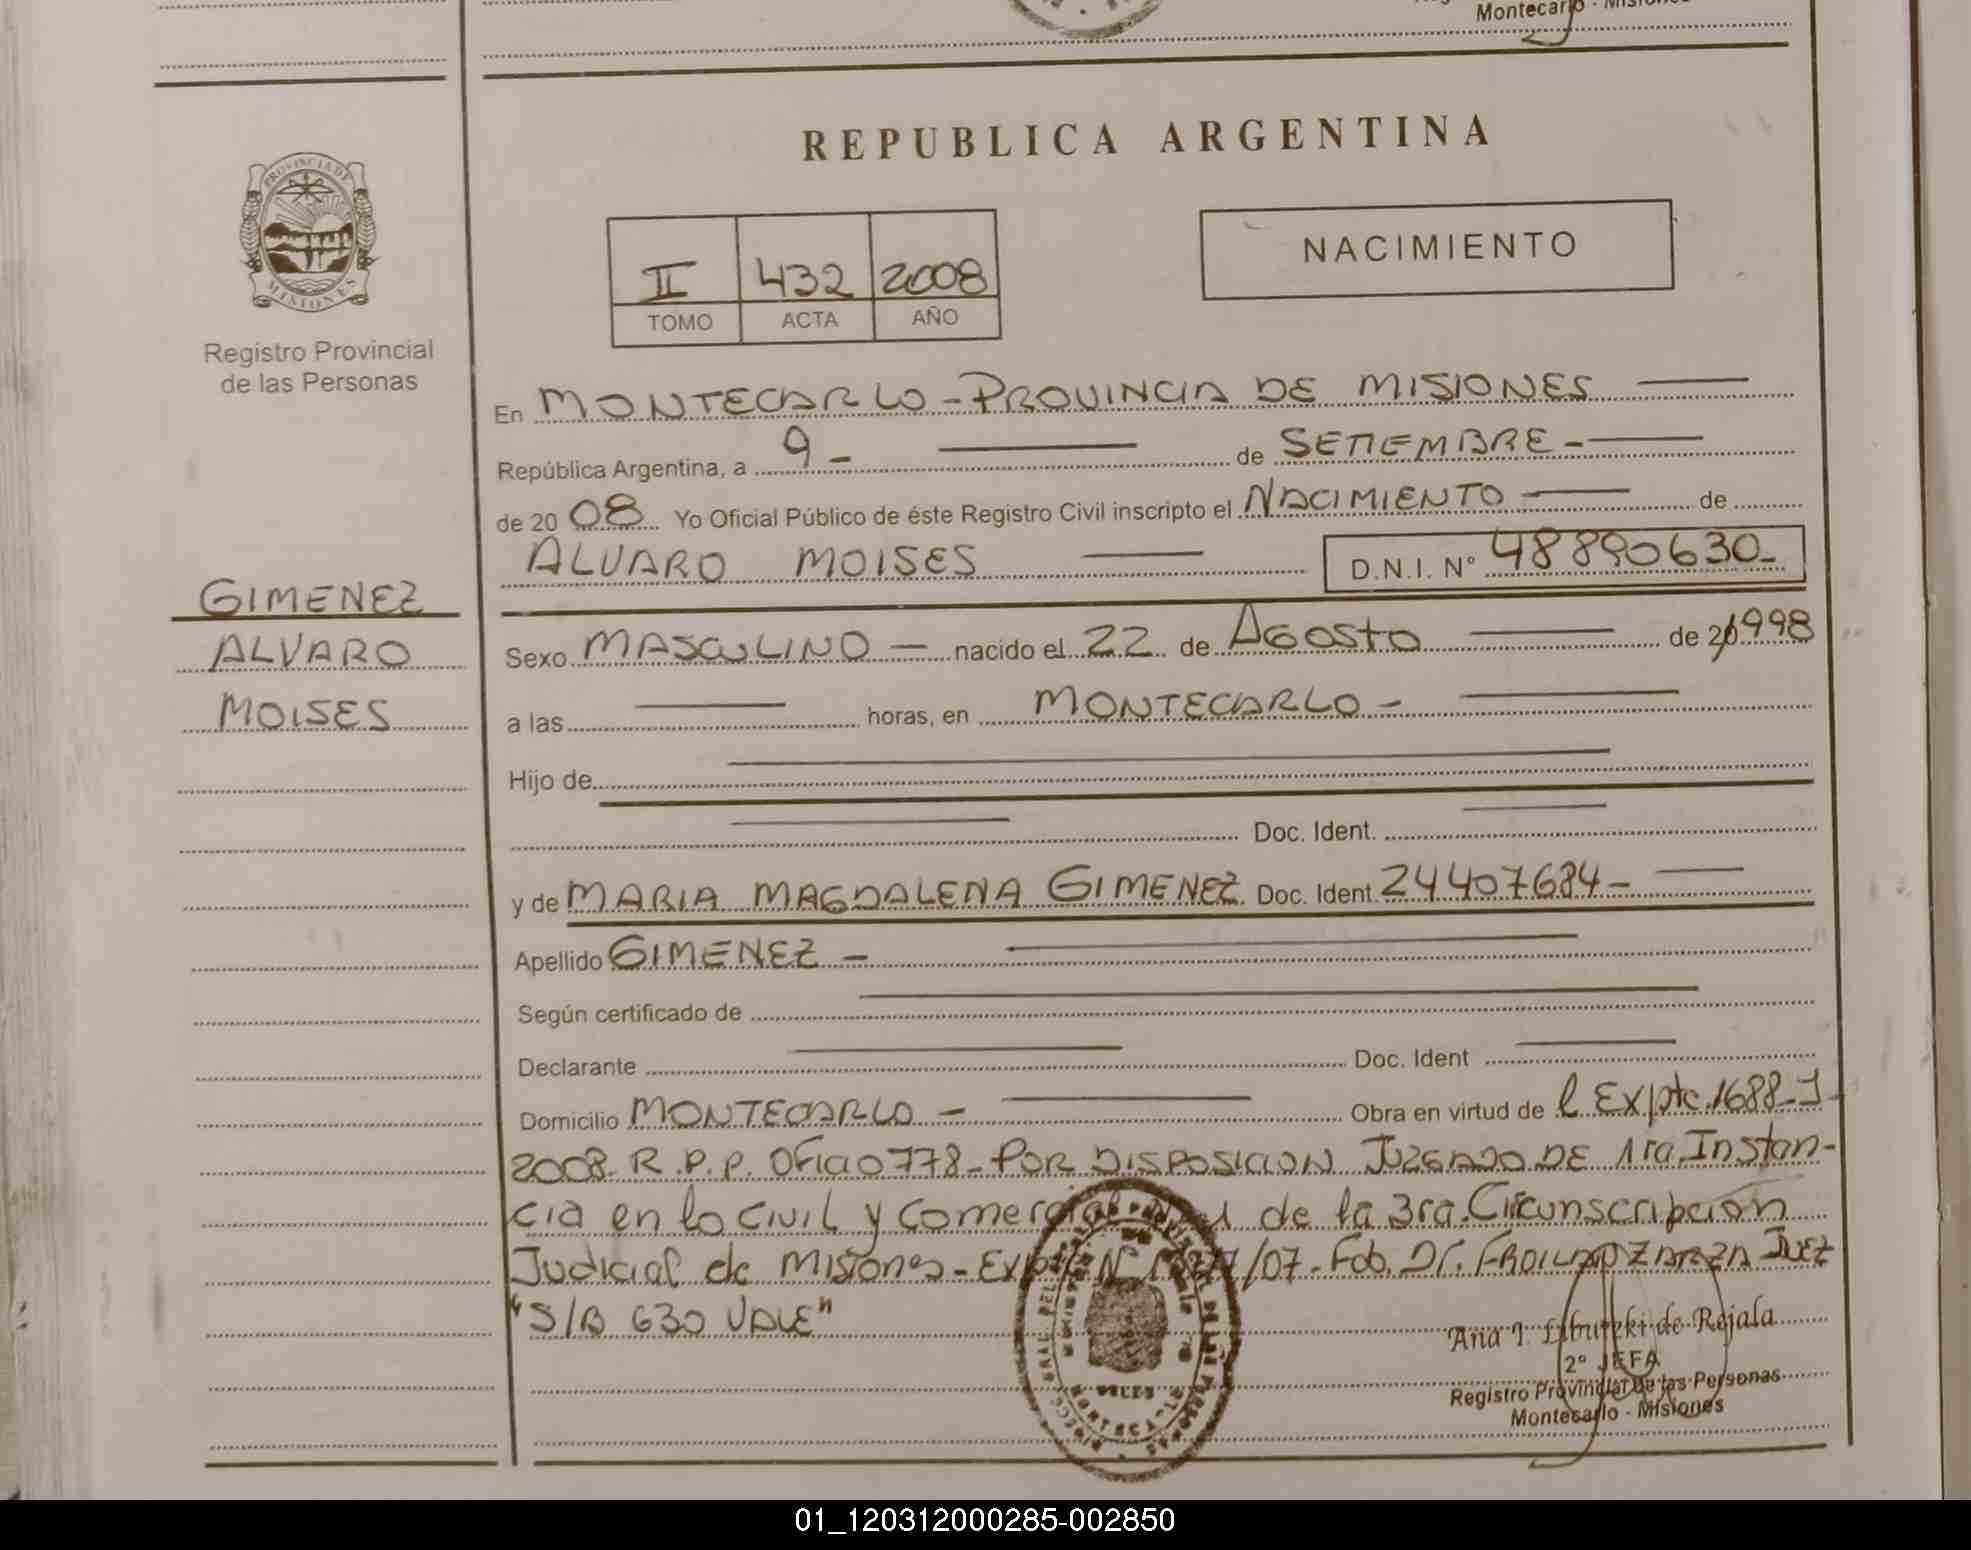 Montecarlo - Misiones
PROVINCIA DE
MISIONES
Registro Provincial
de las Personas
REPUBLICA ARGENTINA
II 432 2008
TOMO ACTA AÑO
NACIMIENTO
En MONTECARLO - PROVINCIA DE MISIONES
República Argentina, a 9 - de SETIEMBRE -
de 20 08 Yo Oficial Público de éste Registro Civil inscripto el NACIMIENTO de
ALVARO MOISES D.N.I. N° 48890630-
GIMENEZ
ALVARO
MOISES
Sexo MASCULINO - nacido el 22 de Agosto de 1998
a las horas, en MONTECARLO -
Hijo de
Doc. Ident.
y de MARIA MAGDALENA GIMENEZ Doc. Ident. 24407684-
Apellido GIMENEZ -
Según certificado de
Declarante Doc. Ident
Domicilio MONTECARLO - Obra en virtud de l Expte. 1688-J-
2008- R.P.P. OFICIO 778- POR DISPOSICION JUZGADO DE 1ra. Instan-
cia en lo Civil y Comercial de la 3ra. Circunscripcion
Judicial de Misiones - Expte N° /07 - Fdo. Dr. FROILAN ZARZA JUEZ
"S/B 630 VALE"
2° JEFA
Registro Provincial de las Personas
Montecarlo - Misiones
01_120312000285-002850